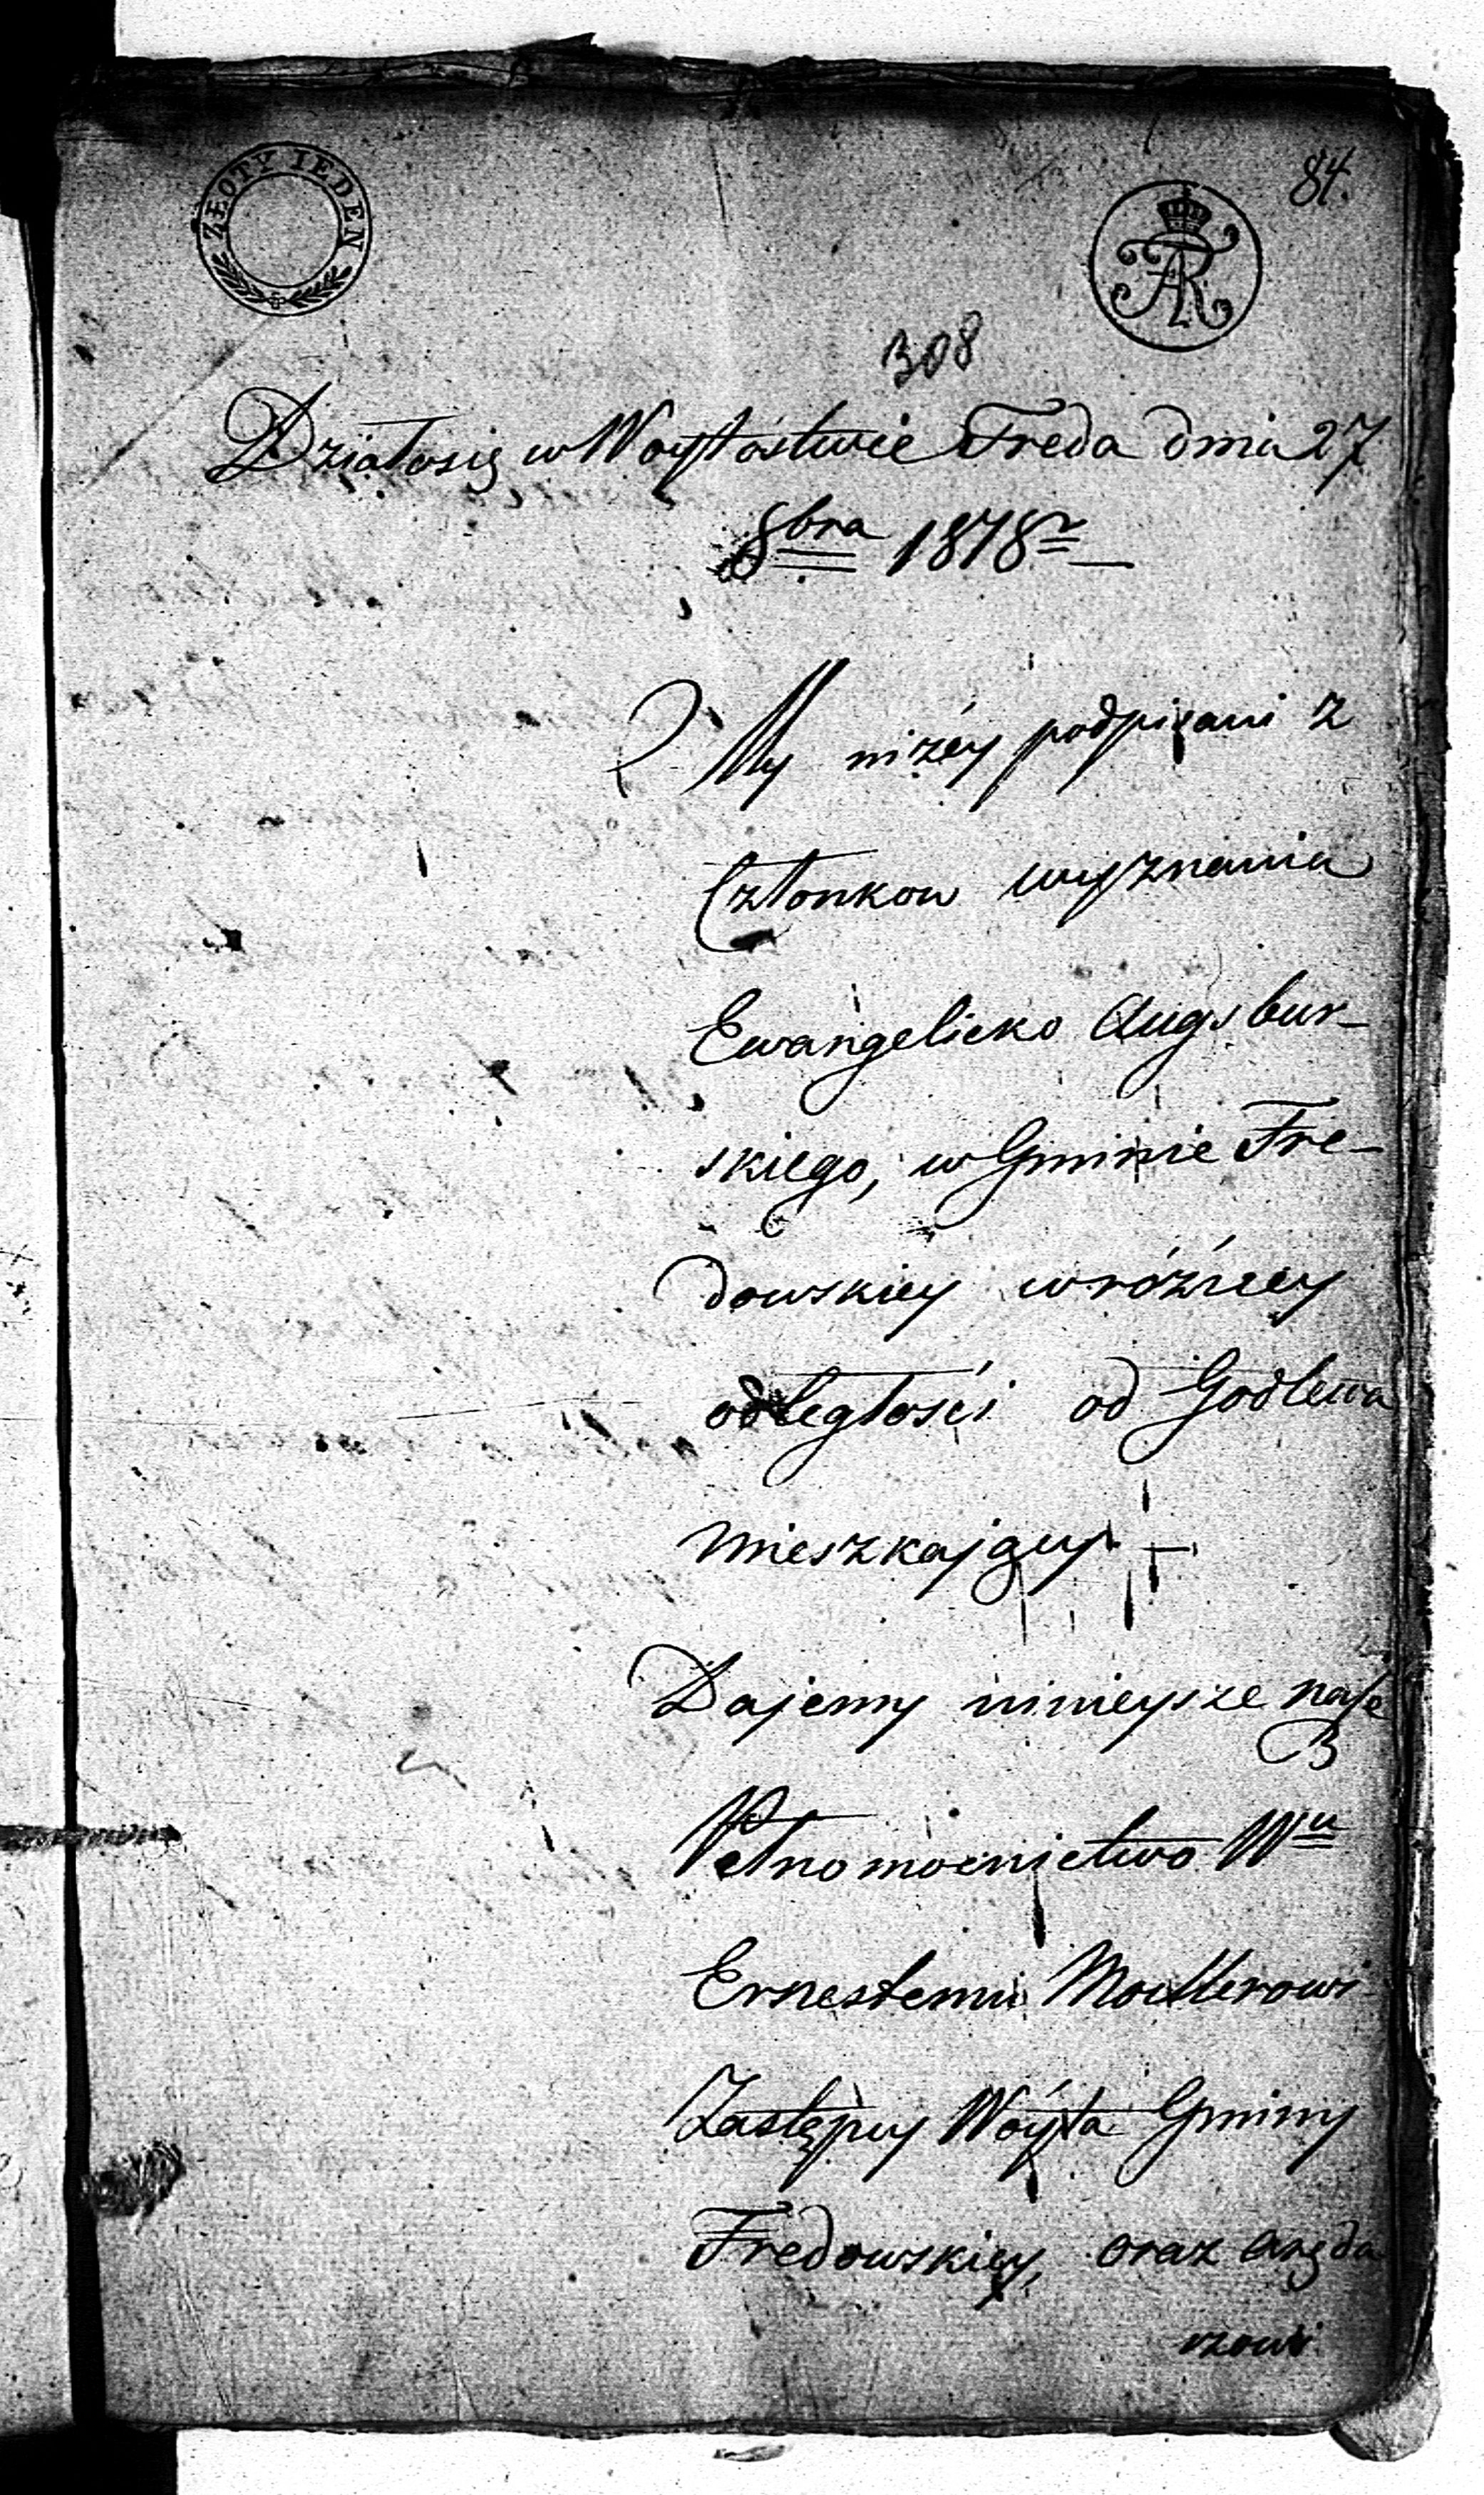 84.
ZŁOTY IEDEN
AR
308
Działosię w Woytostwie Freda dnia 27
8bra 1818r
My niżey podpisani z
Członkow wyznania
Ewangelicko Augsbur-
skiego, w Gminie Fre-
dowskiey w różney
odległości od Godlewa
mieszkaiący
Dajemy ninieysze nasze
Pełnomocnictwo Wu
Ernestemu Moellerowi
Zastępcy Woyta Gminy
Fredowskiey, oraz Aręda
rzowi